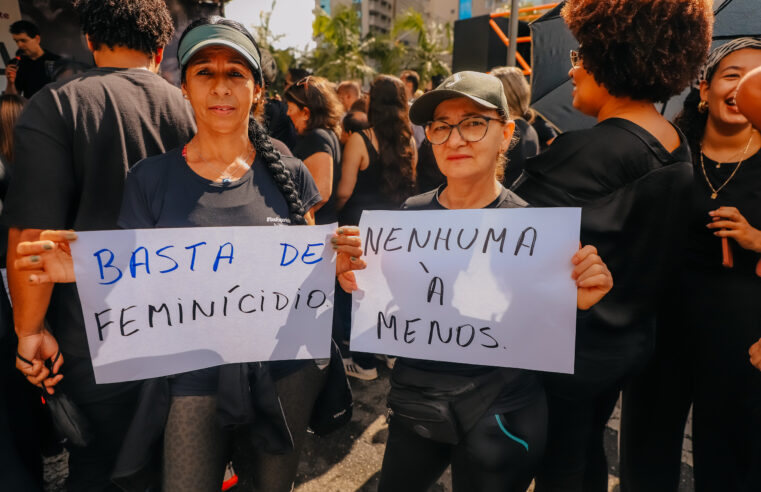 BASTA DE
FEMINÍCIDIO.
NENHUMA
À
MENOS.